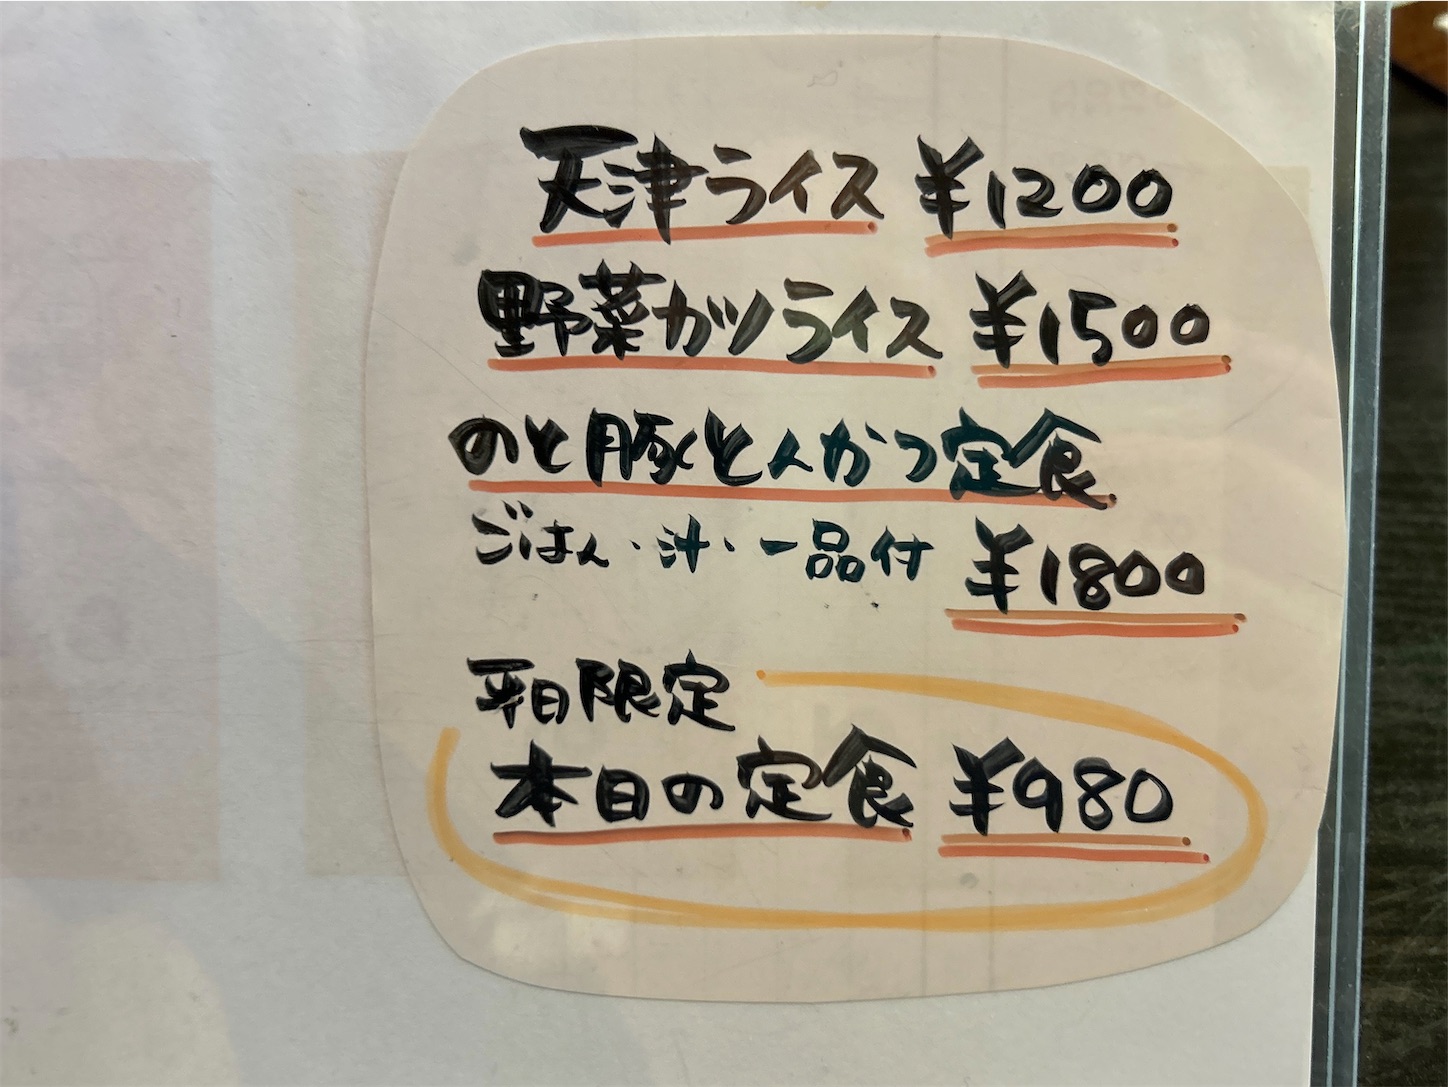 天津ライス ¥1200
野菜カツライス ¥1500
のと豚とんかつ定食
ごはん・汁・一品付 ¥1800
平日限定
本日の定食 ¥980